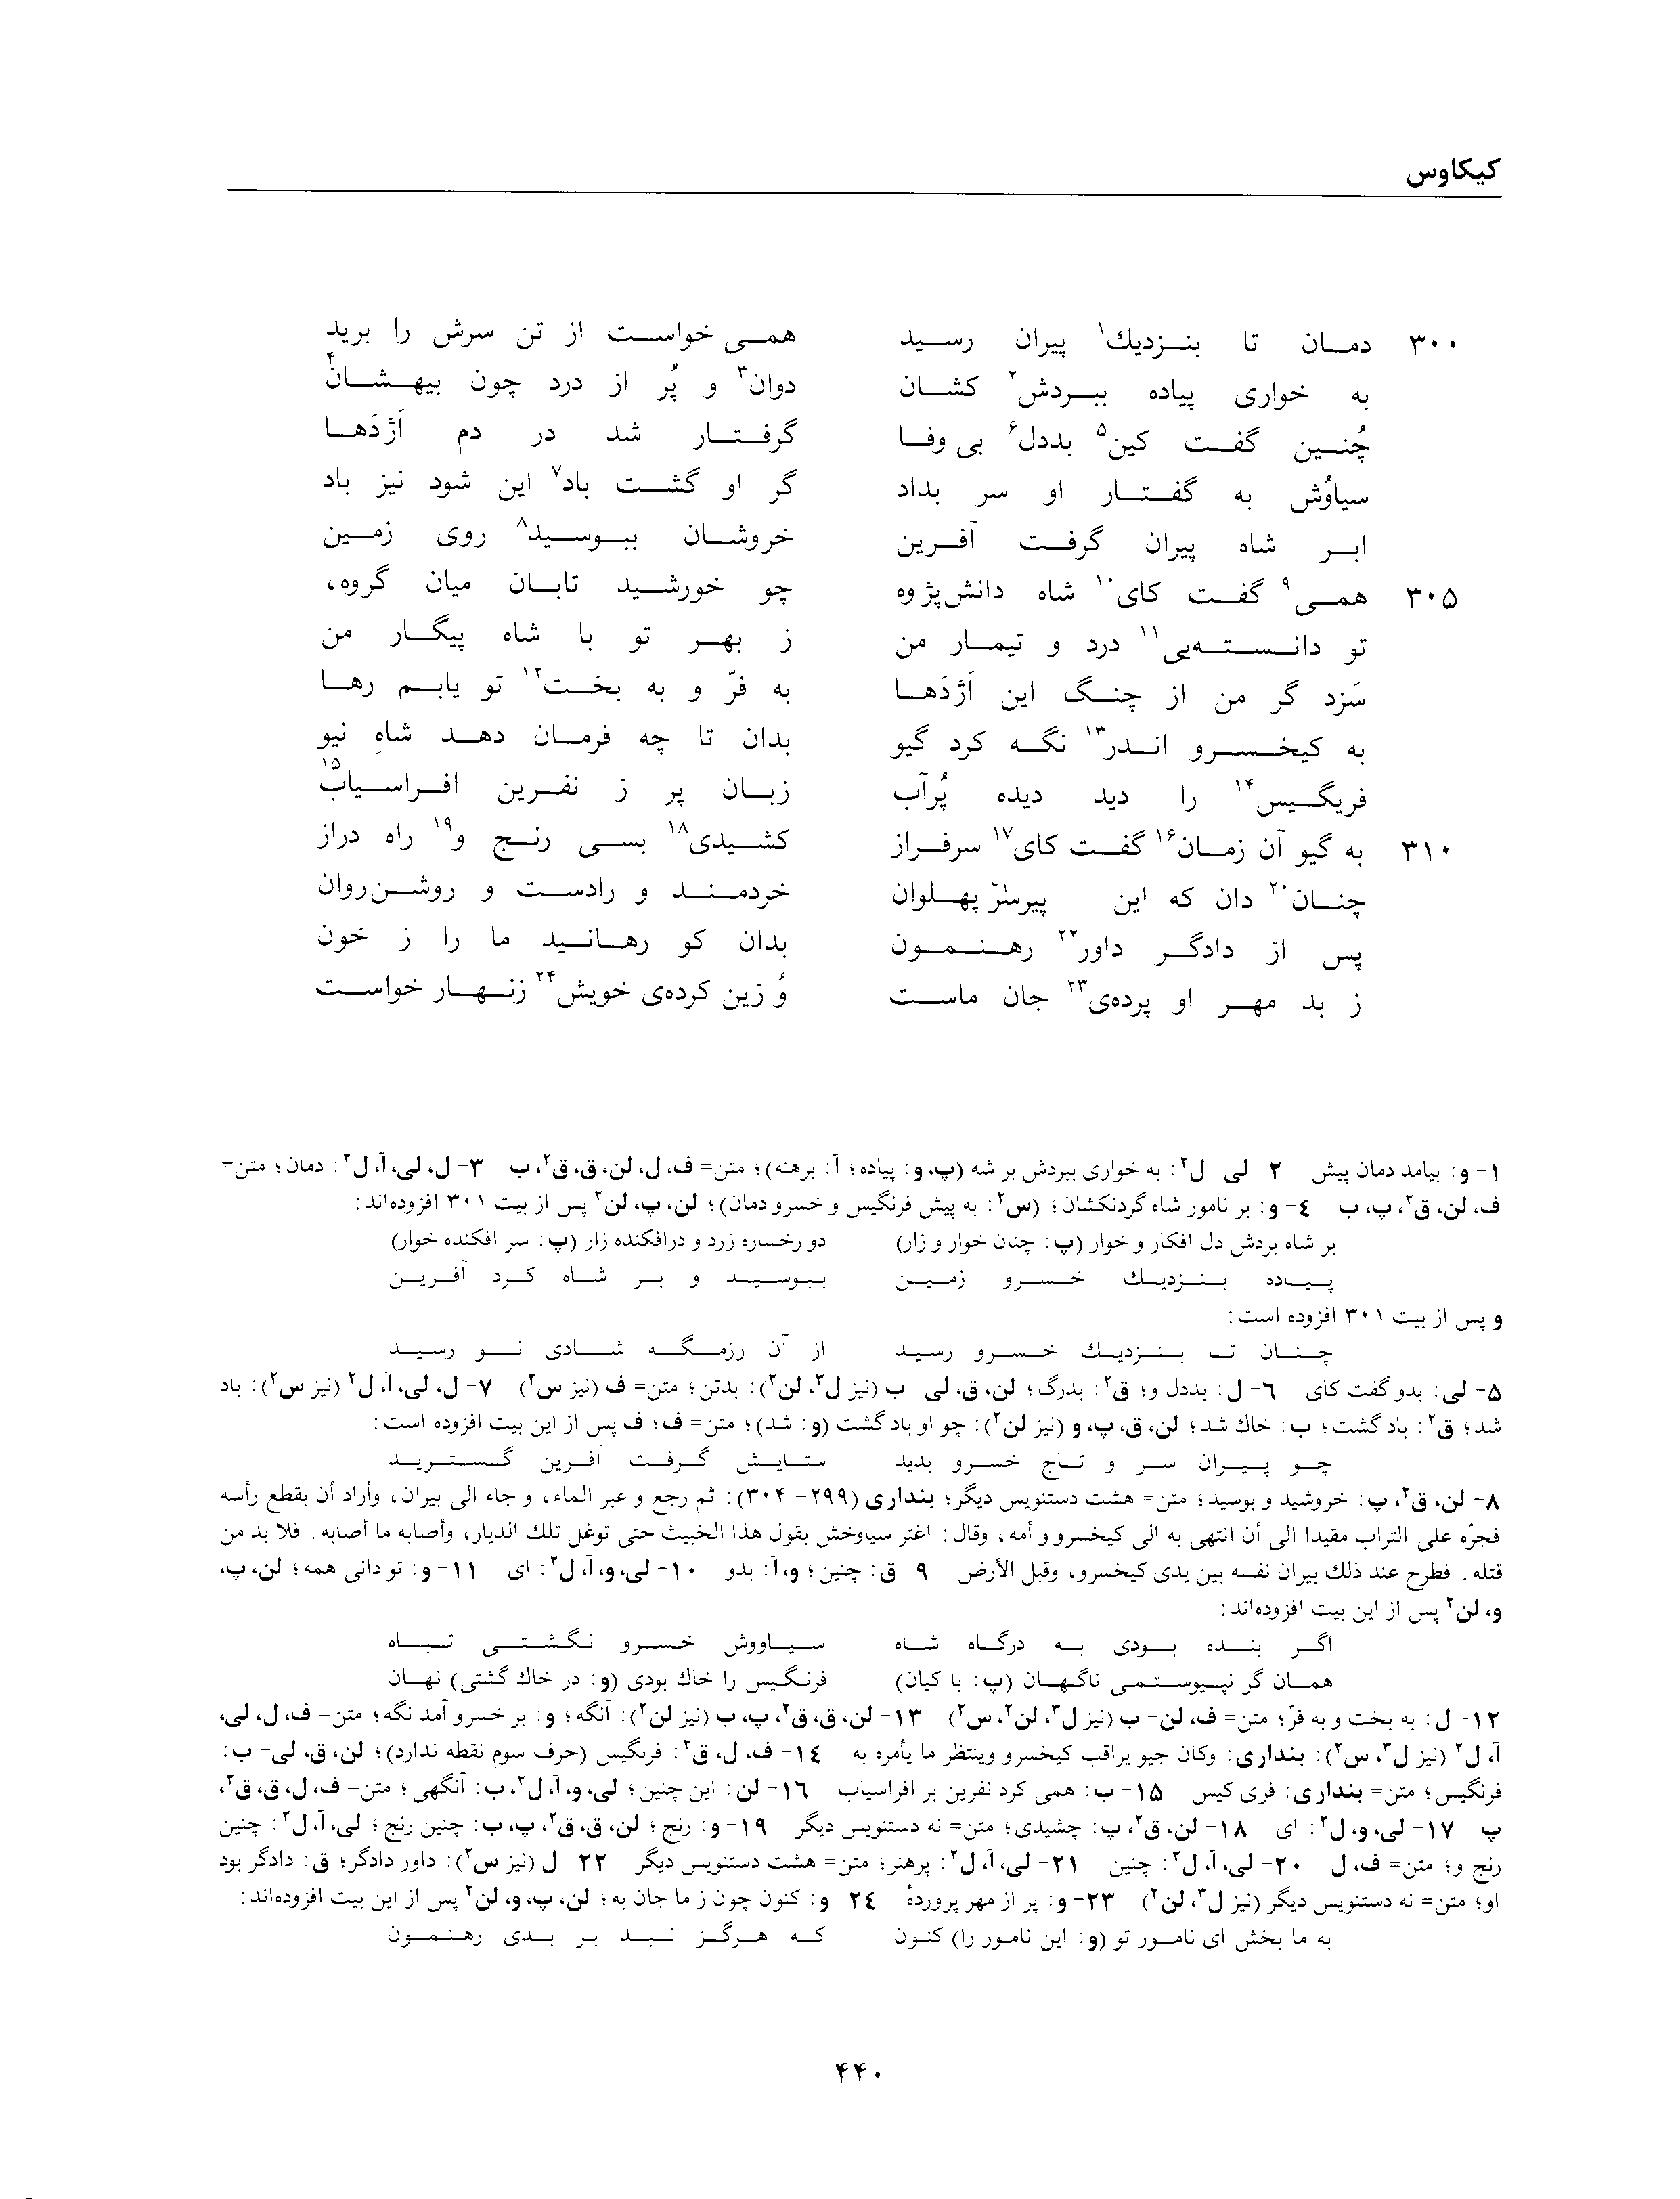 کیکاوس
۳۰۰ دمان تا بنزدیك۱ پیران رسید همی خواست از تن سرش را برید
به خواری پیاده ببردش۲ کشان دوان۳ و پُر از درد چون بیهشان۴
چُنین گفت کین۵ بددل۶ بی وفا گرفتار شد در دم اَژدَها
سیاوُش به گفتار او سر بداد گر او گشت باد۷ این شود نیز باد
ابر شاه پیران گرفت آفرین خروشان ببوسید۸ روی زمین
۳۰۵ همی۹ گفت کای۱۰ شاه دانش‌پژوه چو خورشید تابان میان گروه،
تو دانسته‌یی۱۱ درد و تیمار من ز بهر تو با شاه پیگار من
سَزد گر من از چنگ این اَژدَها به فرّ و به بخت۱۲ تو یابم رها
به کیخسرو اندر۱۳ نگه کرد گیو بدان تا چه فرمان دهد شاهِ نیو
فریگیس۱۴ را دید دیده پُرآب زبان پر ز نفرین افراسیاب۱۵
۳۱۰ به گیو آن زمان۱۶ گفت کای۱۷ سرفراز کشیدی۱۸ بسی رنج و۱۹ راه دراز
چنان۲۰ دان که این پیرسر۲۱ پهلوان خردمند و رادست و روشن‌روان
پس از دادگر داور۲۲ رهنمون بدان کو رهانید ما را ز خون
ز بد مهر او پرده‌ی۲۳ جان ماست وُ زین کرده‌ی خویش۲۴ زنهار خواست
۱- و: بیامد دمان پیش ۲- لی- ل۲: به خواری ببردش بر شه (پ، و: پیاده؛ آ: برهنه)؛ متن= ف، ل، لن، ق، ق۲، ب ۳- ل، لی، آ، ل۲: دمان؛ متن=
ف، لن، ق۲، پ، ب ٤- و: بر نامور شاه گردنکشان؛ (س۲: به پیش فرنگیس و خسرو دمان)؛ لن، پ، لن۲ پس از بیت ۳۰۱ افزوده‌اند:
بر شاه بردش دل افکار و خوار (پ: چنان خوار و زار) دو رخساره زرد و درافکنده زار (پ: سر افکنده خوار)
پیاده بنزدیك خسرو زمین ببوسید و بر شاه کرد آفرین
و پس از بیت ۳۰۱ افزوده است:
چنان تا بنزدیك خسرو رسید از آن رزمگه شادی نو رسید
۵- لی: بدو گفت کای ٦- ل: بددل و؛ ق۲: بدرگ؛ لن، ق، لی- ب (نیز ل۳، لن۲): بدتن؛ متن= ف (نیز س۲) ۷- ل، لی، آ، ل۲ (نیز س۲): باد
شد؛ ق۲: باد گشت؛ ب: خاك شد؛ لن، ق، پ، و (نیز لن۲): چو او باد گشت (و: شد)؛ متن= ف؛ ف پس از این بیت افزوده است:
چو پیران سر و تاج خسرو بدید ستایش گرفت آفرین گسترید
۸- لن، ق۲، پ: خروشید و بوسید؛ متن= هشت دستنویس دیگر؛ بنداری (۲۹۹- ۳۰۴): ثم رجع و عبر الماء، و جاء الی بیران، وأراد أن یقطع رأسه
فجرّه علی التراب مقیدا الی أن انتهی به الی کیخسرو و أمه، وقال: اغتر سیاوخش بقول هذا الخبیث حتی توغل تلك الدیار، وأصابه ما أصابه. فلا بد من
قتله. فطرح عند ذلك بیران نفسه بین یدی کیخسرو، وقبل الأرض ۹- ق: چنین؛ و، آ: بدو ۱۰- لی، و، آ، ل۲: ای ۱۱- و: تو دانی همه؛ لن، پ،
و، لن۲ پس از این بیت افزوده‌اند:
اگر بنده بودی به درگاه شاه سیاووش خسرو نگشتی تباه
همان گر نپیوستمی ناگهان (پ: با کیان) فرنگیس را خاك بودی (و: در خاك گشتی) نهان
۱۲- ل: به بخت و به فرّ؛ متن= ف، لن- ب (نیز ل۳، لن۲، س۲) ۱۳- لن، ق، ق۲، پ، ب (نیز لن۲): آنگه؛ و: بر خسرو آمد نگه؛ متن= ف، ل، لی،
آ، ل۲ (نیز ل۳، س۲)؛ بنداری: وکان جیو یراقب کیخسرو وینتظر ما یأمره به ۱٤- ف، ل، ق۲: فرىگیس (حرف سوم نقطه ندارد)؛ لن، ق، لی- ب:
فرنگیس؛ متن= بنداری: فری کیس ۱۵- ب: همی کرد نفرین بر افراسیاب ۱٦- لن: این چنین؛ لی، و، آ، ل۲، ب: آنگهی؛ متن= ف، ل، ق، ق۲،
پ ۱۷- لی، و، ل۲: ای ۱۸- لن، ق۲، پ: چشیدی؛ متن= نه دستنویس دیگر ۱۹- و: رنج؛ لن، ق، ق۲، پ، ب: چنین رنج؛ لی، آ، ل۲: چنین
رنج و؛ متن= ف، ل ۲۰- لی، آ، ل۲: چنین ۲۱- لی، آ، ل۲: پرهنر؛ متن= هشت دستنویس دیگر ۲۲- ل (نیز س۲): داور دادگر؛ ق: دادگر بود
او؛ متن= نه دستنویس دیگر (نیز ل۳، لن۲) ۲۳- و: پر از مهر پروردهٔ ۲٤- و: کنون چون ز ما جان به؛ لن، پ، و، لن۲ پس از این بیت افزوده‌اند:
به ما بخش ای نامور تو (و: این نامور را) کنون که هرگز نبد بر بدی رهنمون
۴۴۰